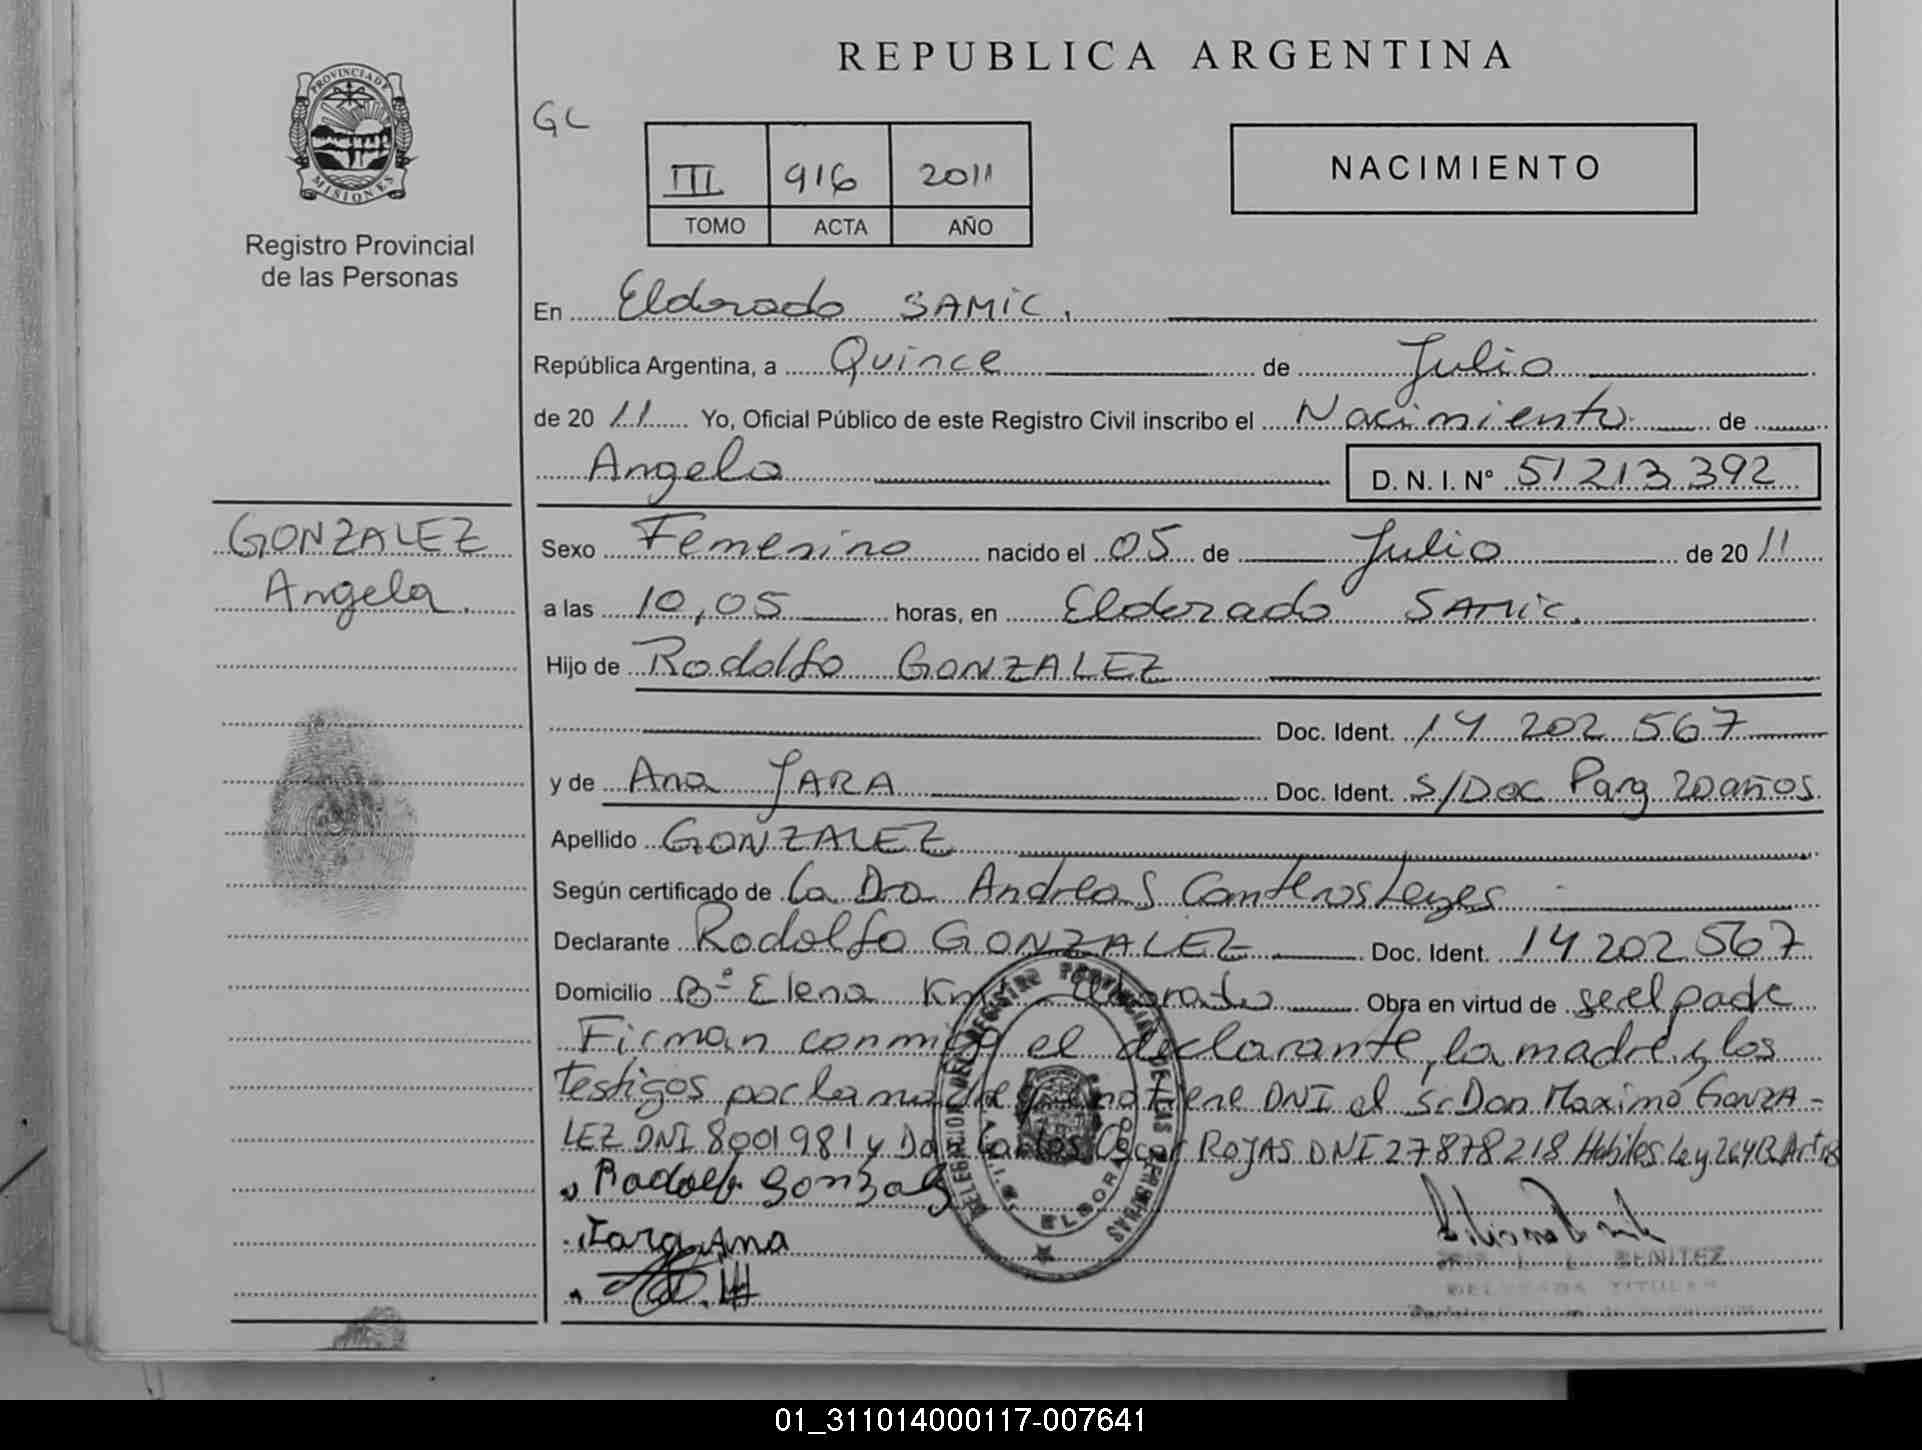 REPUBLICA ARGENTINA
PROVINCIA DE
MISIONES
Registro Provincial
de las Personas
GC
III 916 2011
TOMO ACTA AÑO
NACIMIENTO
En Eldorado SAMIC.
República Argentina, a Quince de Julio
de 2011 Yo, Oficial Público de este Registro Civil inscribo el Nacimiento de
Angela D. N. I. Nº 51 213 392
GONZALEZ
Angela.
Sexo Femenino nacido el 05 de Julio de 2011
a las 10,05 horas, en Eldorado SAMIC.
Hijo de Rodolfo GONZALEZ
Doc. Ident. 14 202 567
y de Ana JARA Doc. Ident. S/Doc Parg 20 años
Apellido GONZALEZ
Según certificado de la Dra Andrea S Canteros Leyes
Declarante Rodolfo GONZALEZ Doc. Ident. 14 202 567
Domicilio Bº Elena Km Obra en virtud de ser el padre
Firman conmigo el declarante, la madre y los
testigos por la madre no tiene DNI el Sr Don Maximo GONZA-
LEZ DNI 8001981 y Don Carlos Oscar ROJAS DNI 27878218 Habiles Ley 26413 Art
Rodolfo Gonzalez
Jara Ana
BENITEZ
DELEGADA TITULAR
01_311014000117-007641